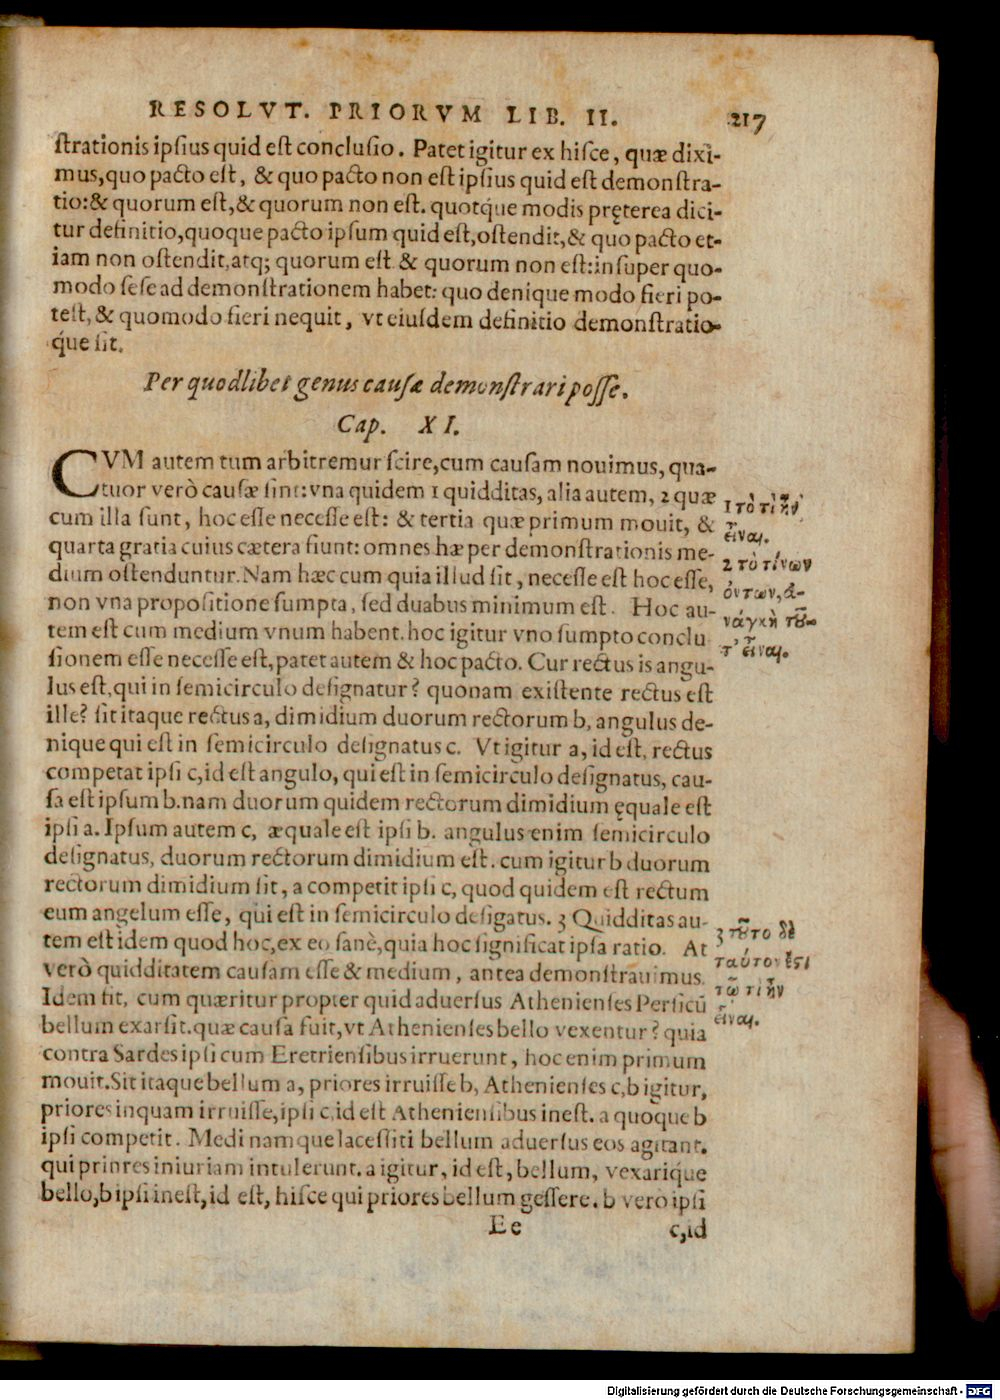 RESOLVT. PRIORVM LIB. II. 217
ſtrationis ipſius quid eſt concluſio. Patet igitur ex hiſce, quæ dixi-
mus, quo pacto eſt, & quo pacto non eſt ipſius quid eſt demonſtra-
tio: & quorum eſt, & quorum non eſt. quotq́ue modis pręterea dici-
tur definitio, quoque pacto ipſum quid eſt, oſtendit, & quo pacto et-
iam non oſtendit, atq; quorum eſt & quorum non eſt: inſuper quo-
modo ſeſe ad demonſtrationem habet: quo denique modo fieri po-
teſt, & quomodo fieri nequit, vt eiuſdem definitio demonſtratio-
q́ue ſit.
Per quodlibet genus cauſæ demonſtrari poſſe.
Cap. XI.
CVM autem tum arbitremur ſcire, cum cauſam nouimus, qua-
tuor verò cauſæ ſint: vna quidem 1 quidditas, alia autem, 2 quæ
cum illa ſunt, hoc eſſe neceſſe eſt: & tertia quæ primum mouit, &
quarta gratia cuius cætera fiunt: omnes hæ per demonſtrationis me-
dium oſtenduntur. Nam hæc cum quia illud ſit, neceſſe eſt hoc eſſe,
non vna propoſitione ſumpta, ſed duabus minimum eſt. Hoc au-
tem eſt cum medium vnum habent. hoc igitur vno ſumpto conclu
ſionem eſſe neceſſe eſt, patet autem & hoc pacto. Cur rectus is angu-
lus eſt, qui in ſemicirculo deſignatur? quonam exiſtente rectus eſt
ille? ſit itaque rectus a, dimidium duorum rectorum b, angulus de-
nique qui eſt in ſemicirculo deſignatus c. Vt igitur a, id eſt, rectus
competat ipſi c, id eſt angulo, qui eſt in ſemicirculo deſignatus, cau-
ſa eſt ipſum b. nam duorum quidem rectorum dimidium ęquale eſt
ipſi a. Ipſum autem c, æquale eſt ipſi b. angulus enim ſemicirculo
deſignatus, duorum rectorum dimidium eſt. cum igitur b duorum
rectorum dimidium ſit, a competit ipſi c, quod quidem eſt rectum
eum angelum eſſe, qui eſt in ſemicirculo deſigatus. 3 Quidditas au-
tem eſt idem quod hoc, ex eo ſanè, quia hoc ſignificat ipſa ratio. At
verò quidditatem cauſam eſſe & medium, antea demonſtrauimus.
Idem fit, cum quæritur propter quid aduerſus Athenienſes Perſicũ
bellum exarſit. quæ cauſa fuit, vt Athenienſes bello vexentur? quia
contra Sardes ipſi cum Eretrienſibus irruerunt, hoc enim primum
mouit. Sit itaque bellum a, priores irruiſſe b, Athenienſes c, b igitur,
priores inquam irruiſſe, ipſi c, id eſt Athenienſibus ineſt. a quoque b
ipſi competit. Medi namque laceſſiti bellum aduerſus eos agitant.
qui priores iniuriam intulerunt. a igitur, id eſt, bellum, vexarique
bello, b ipſi ineſt, id eſt, hiſce qui priores bellum geſſere. b verò ipſi
Ee c, id
1 τὸ τί ἦν
εἶναι.
2 τὸ τίνων
ὄντων, ἀ-
νάγκη τοῦ-
τ' εἶναι.
3 τοῦτο δὲ
ταὐτόν ἐστι
τῷ τί ἦν
εἶναι.
Digitalisierung gefördert durch die Deutsche Forschungsgemeinschaft - DFG